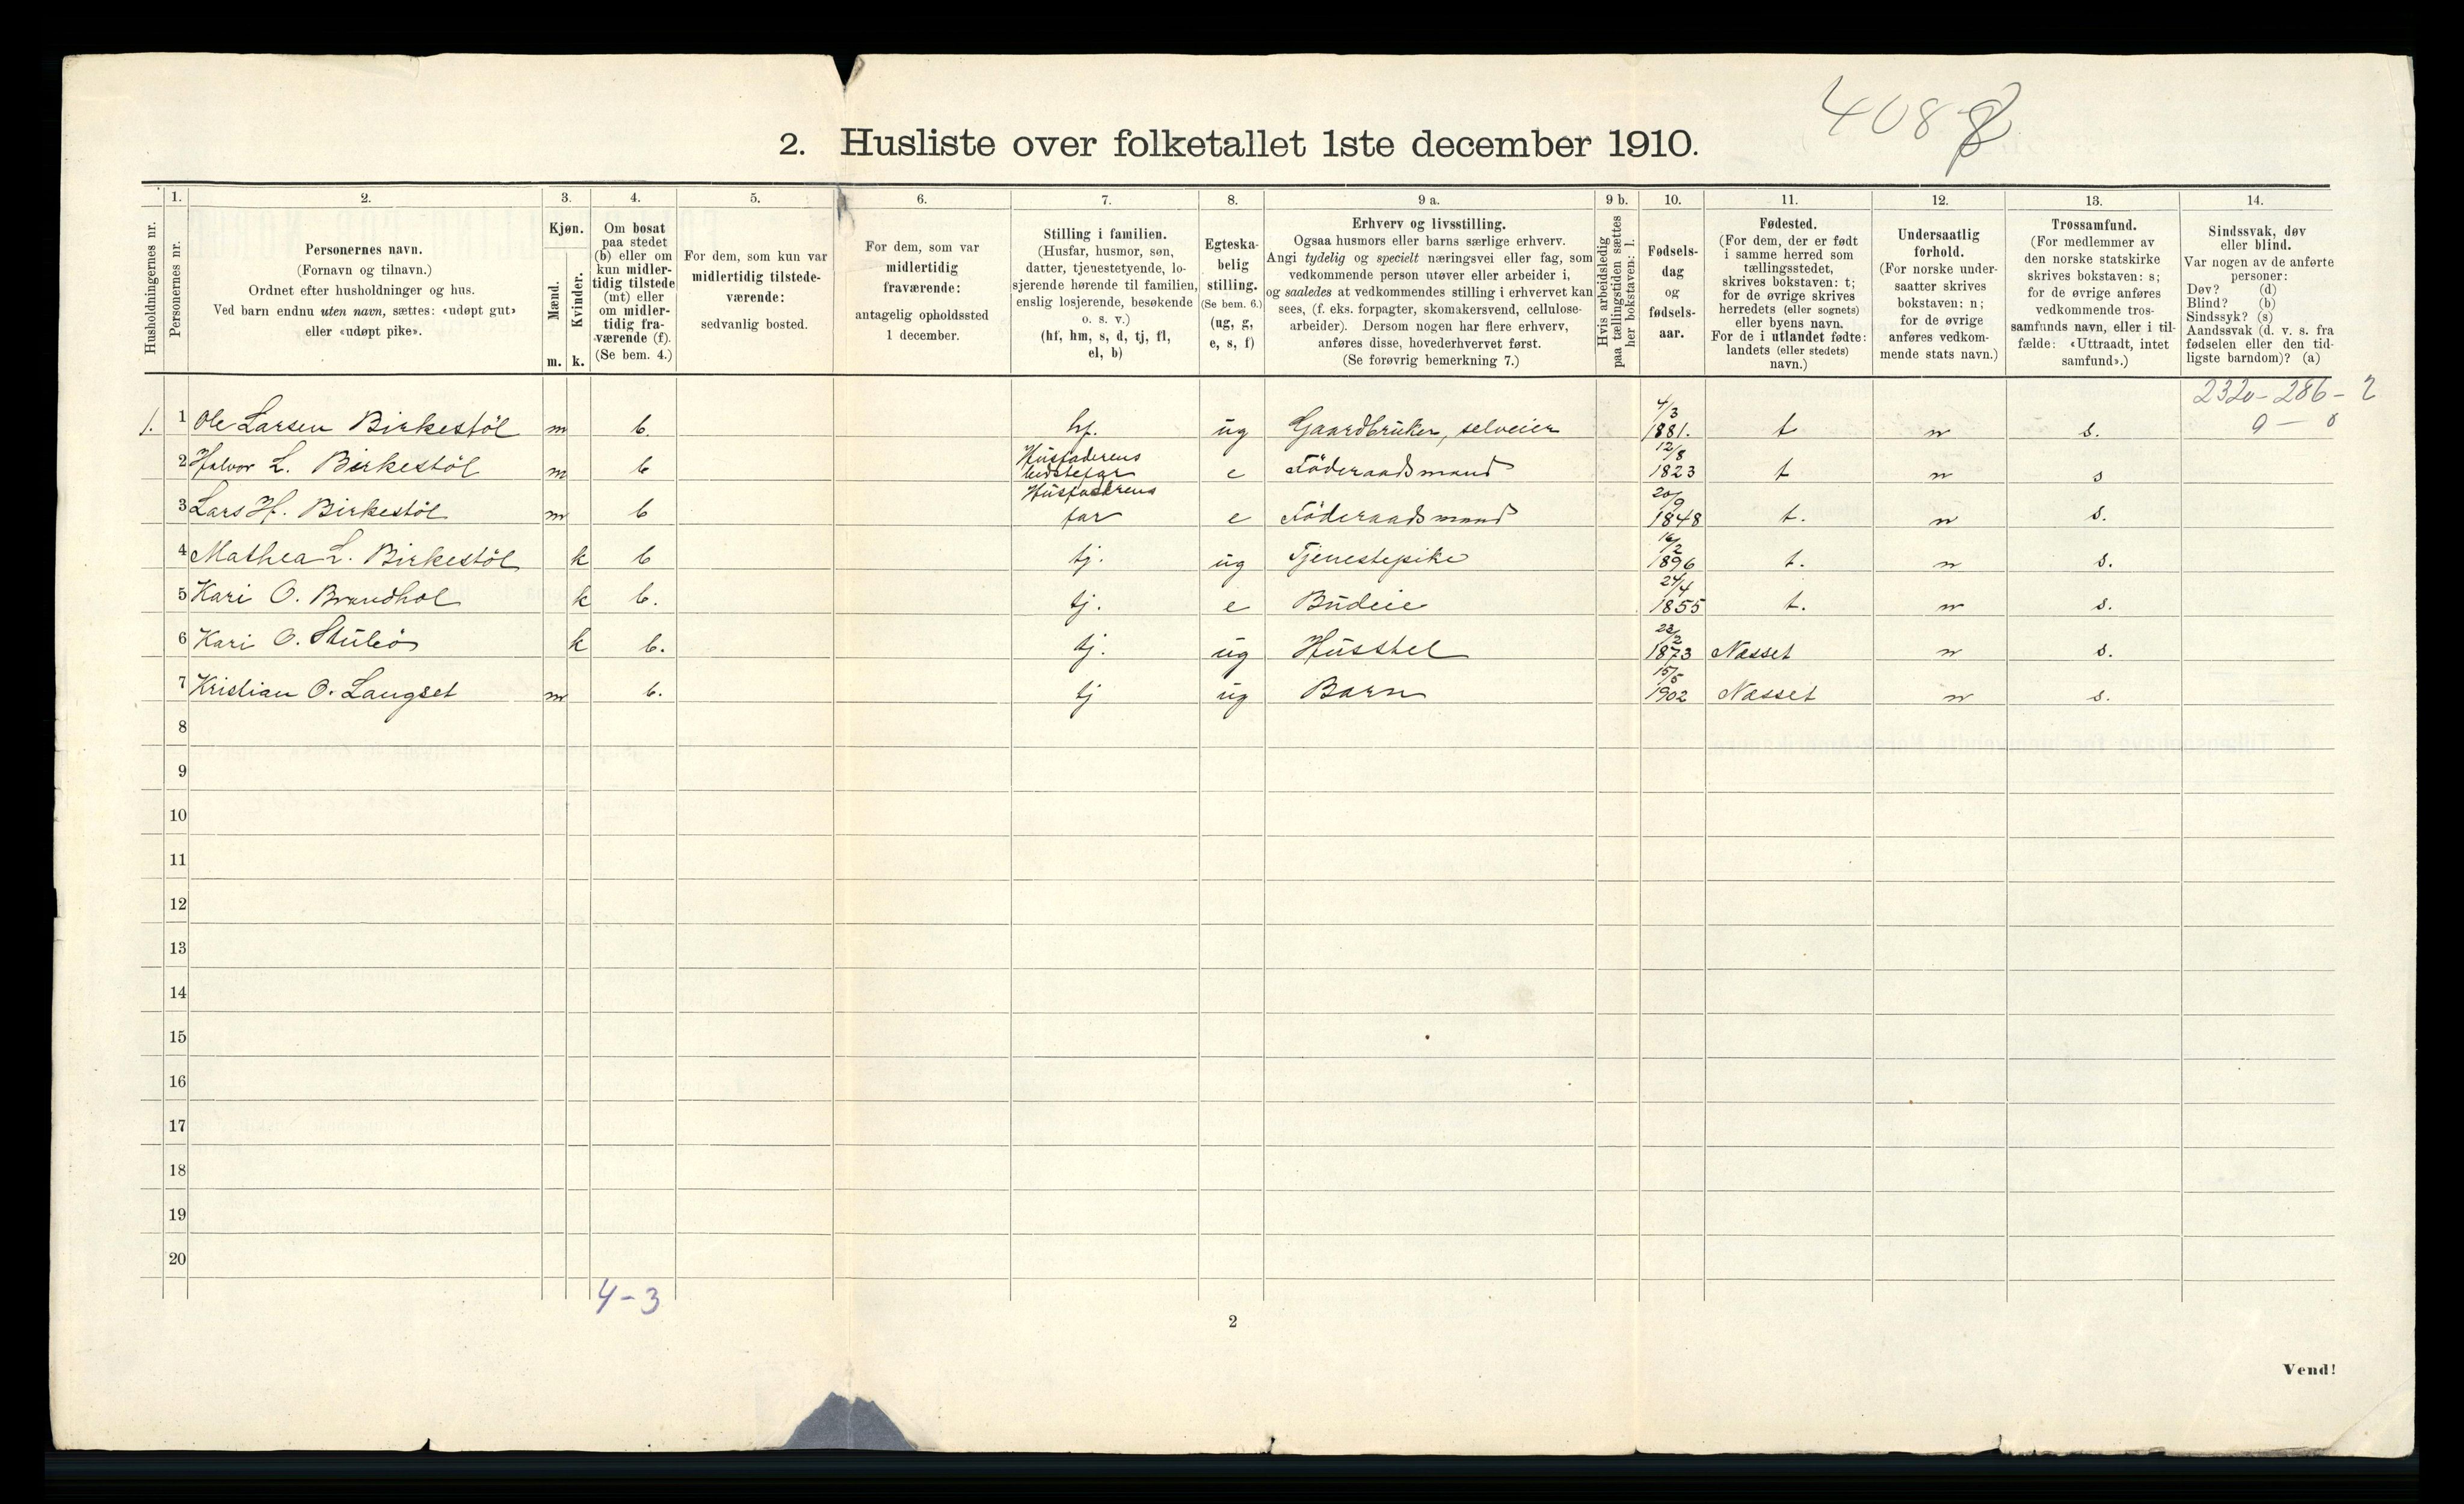 408
2. Husliste over folketallet 1ste december 1910.
Husholdningernes nr.
1. Personernes nr.
2. Personernes navn.
(Fornavn og tilnavn.)
Ordnet efter husholdninger og hus.
Ved barn endnu uten navn, sættes: «udøpt gut»
eller «udøpt pike».
3. Kjøn.
Mænd. m.
Kvinder. k.
4. Om bosat
paa stedet
(b) eller om
kun midler-
tidig tilstede
(mt) eller
om midler-
tidig fra-
værende (f).
(Se bem. 4.)
5. For dem, som kun var
midlertidig tilstede-
værende:
sedvanlig bosted.
6. For dem, som var
midlertidig
fraværende:
antagelig opholdssted
1 december.
7. Stilling i familien.
(Husfar, husmor, søn,
datter, tjenestetyende, lo-
sjerende hørende til familien,
enslig losjerende, besøkende
o. s. v.)
(hf, hm, s, d, tj, fl,
el, b)
8. Egteska-
belig
stilling.
(Se bem. 6.)
(ug, g,
e, s, f)
9 a. Erhverv og livsstilling.
Ogsaa husmors eller barns særlige erhverv.
Angi tydelig og specielt næringsvei eller fag, som
vedkommende person utøver eller arbeider i,
og saaledes at vedkommendes stilling i erhvervet kan
sees, (f. eks. forpagter, skomakersvend, cellulose-
arbeider). Dersom nogen har flere erhverv,
anføres disse, hovederhvervet først.
(Se forøvrig bemerkning 7.)
9 b. Hvis arbeidsledig
paa tællingstiden sættes
her bokstaven: l.
10. Fødsels-
dag
og
fødsels-
aar.
11. Fødested.
(For dem, der er født
i samme herred som
tællingsstedet,
skrives bokstaven: t;
for de øvrige skrives
herredets (eller sognets)
eller byens navn.
For de i utlandet fødte:
landets (eller stedets)
navn.)
12. Undersaatlig
forhold.
(For norske under-
saatter skrives
bokstaven: n;
for de øvrige
anføres vedkom-
mende stats navn.)
13. Trossamfund.
(For medlemmer av
den norske statskirke
skrives bokstaven: s;
for de øvrige anføres
vedkommende tros-
samfunds navn, eller i til-
fælde: «Uttraadt, intet
samfund».)
14. Sindssvak, døv
eller blind.
Var nogen av de anførte
personer:
Døv? (d)
Blind? (b)
Sindssyk? (s)
Aandssvak (d. v. s. fra
fødselen eller den tid-
ligste barndom)? (a)
2320-286-2
0 - 0
1. 1 Ole Larsen Birkestöl m b. hf. ug Gaardbruker, selveier 4/3 1881. t n s.
2 Halvor L. Birkestöl m b Husfaderens bedstefar e Föderaadsmand 12/8 1823 t n s
3 Lars H. Birkestöl m b Husfaderens far e Föderaadsmand 20/9 1848 t. n s.
4 Mathea L. Birkestöl k b tj. ug Tjenestepike 16/2 1896 t. n s.
5 Kari O. Brandhol k b. tj. e Budeie 24/4 1855 t. n s.
6 Kari O. Stubö k b. tj. ug Husstel 1873 Næsset n s.
7 Kristian O. Langset m b. tj ug Barn 15/5 1902 Næsset n s.
8
9
10
11
12
13
14
15
16
17
18
19
20
4-3
2
Vend!